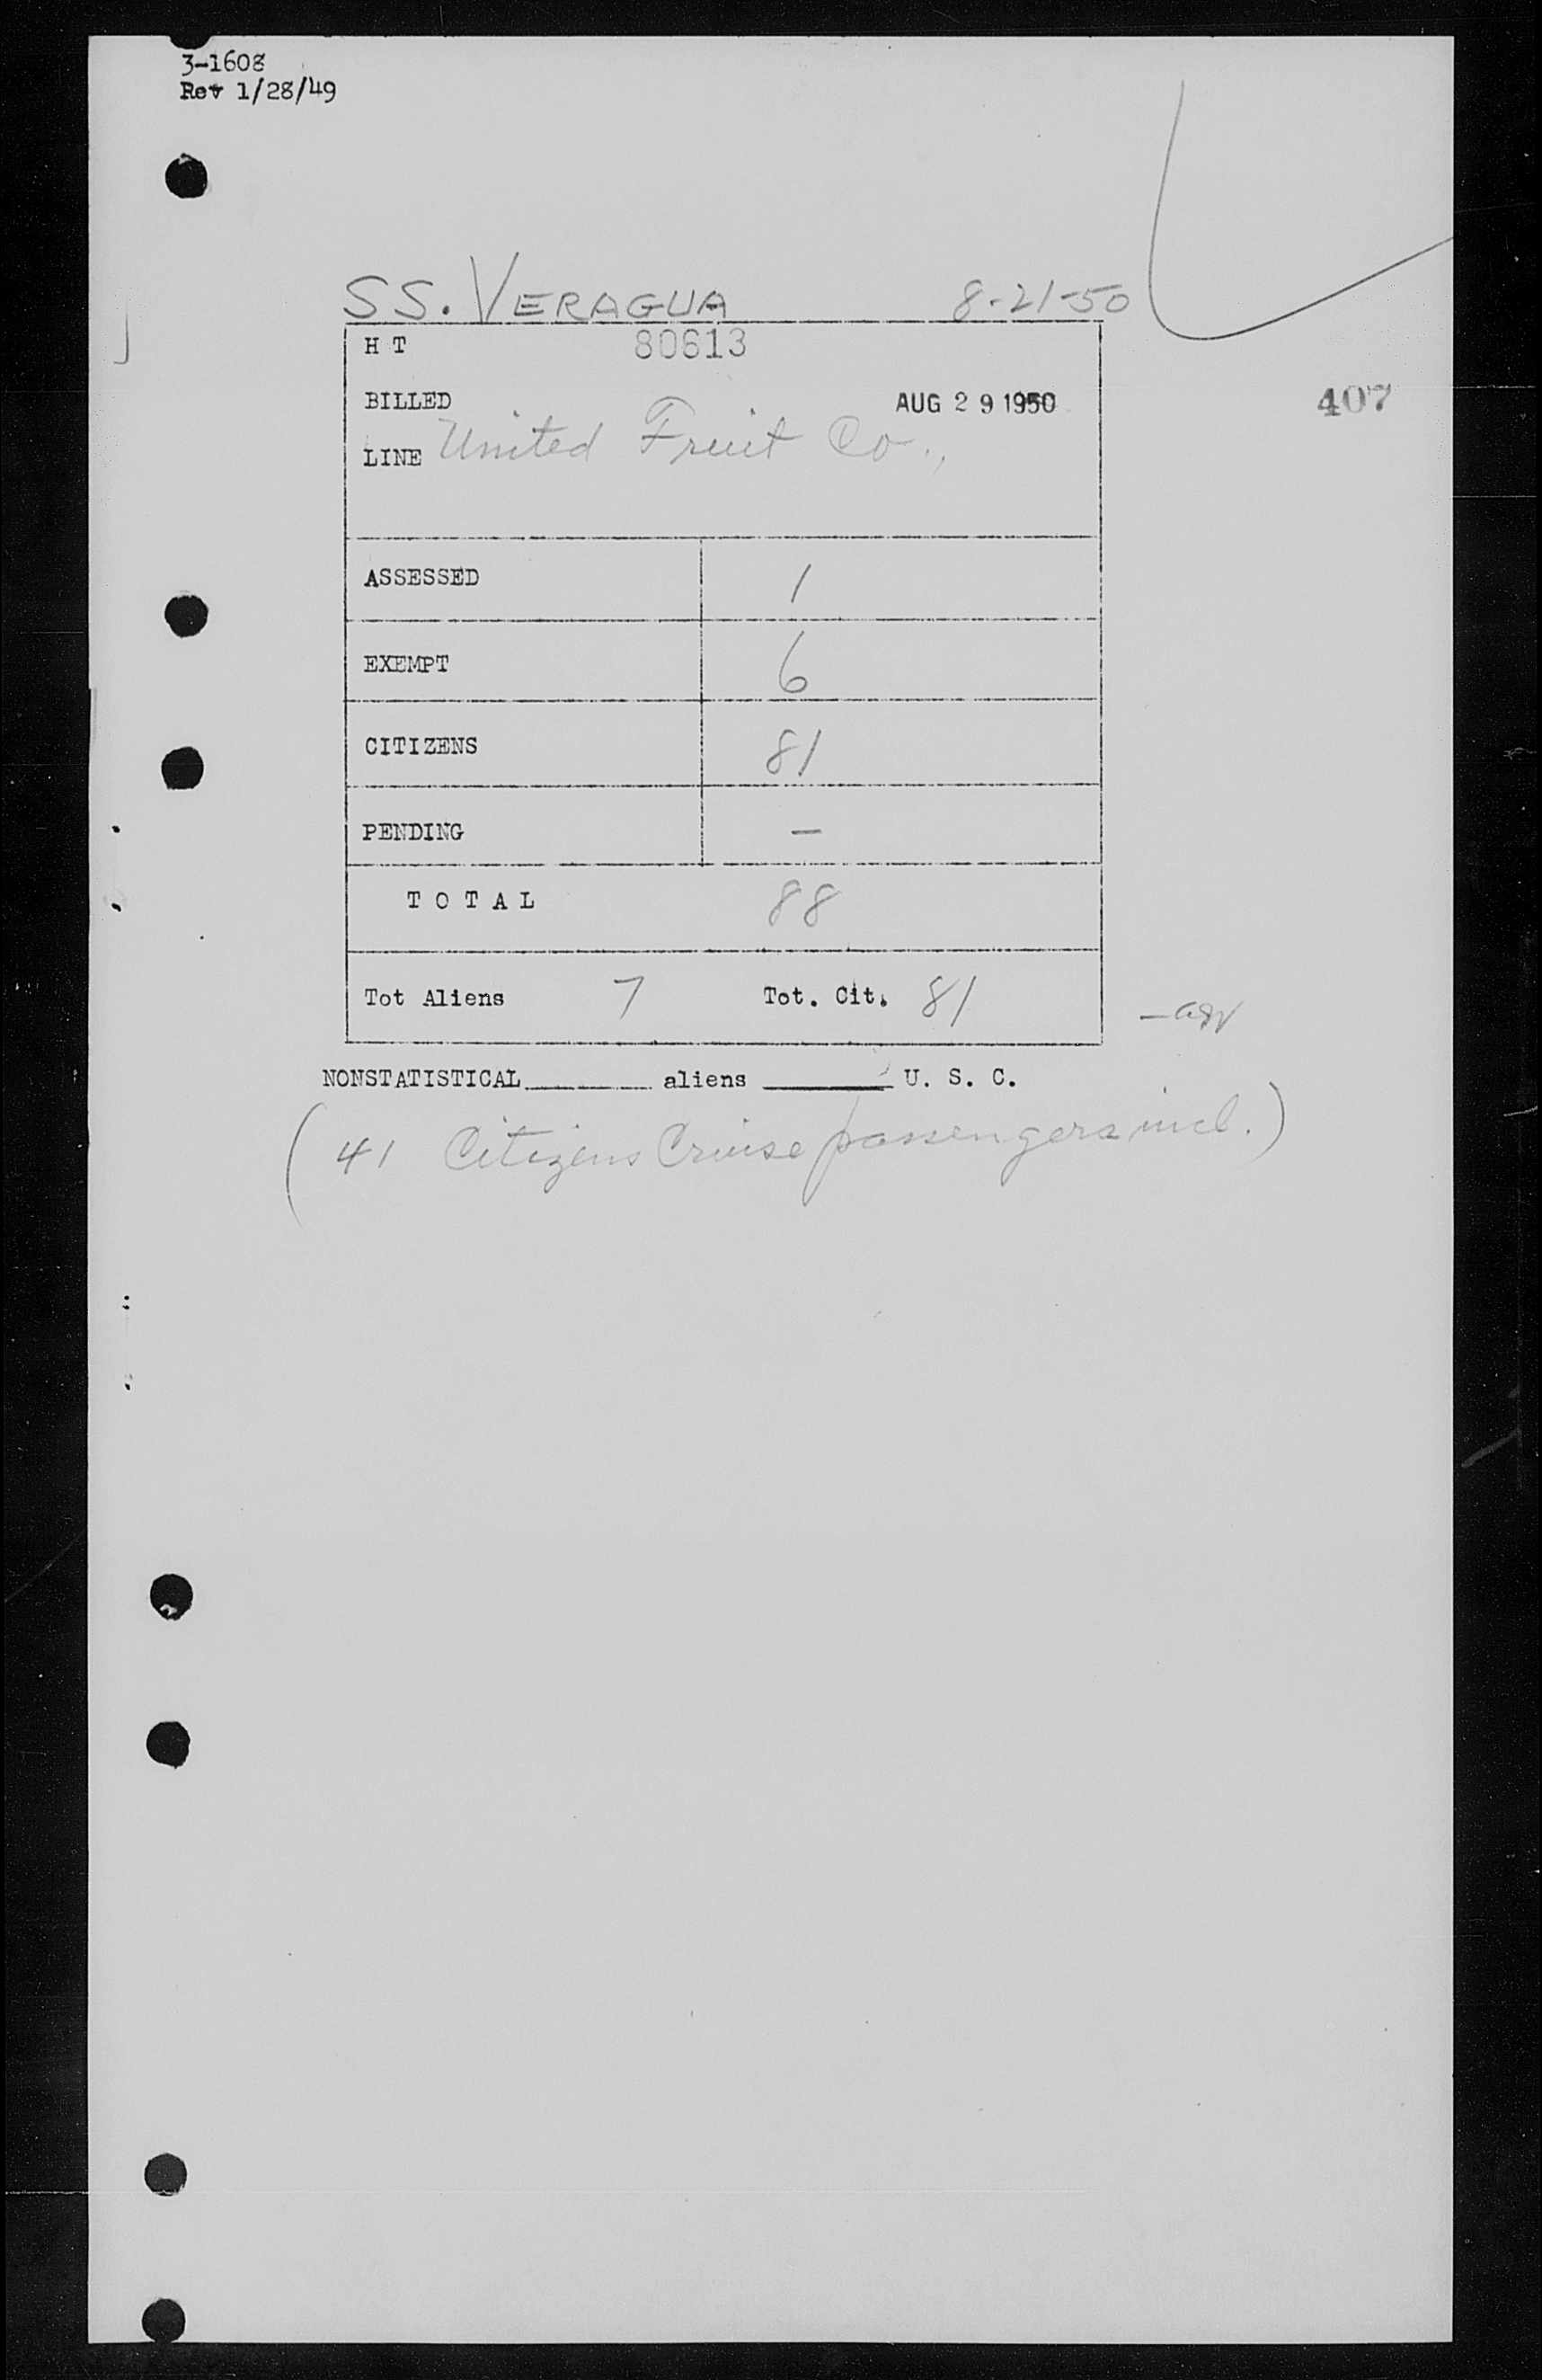 3-1608
Rev 1/28/49
SS. VERAGUA 8-21-50
H T 80613
BILLED AUG 29 1950
407
LINE United Fruit Co.,
ASSESSED 1
EXEMPT 6
CITIZENS 81
PENDING —
TOTAL 88
Tot Aliens 7 Tot. Cit. 81
NONSTATISTICAL aliens U. S. C.
(41 Citizens Cruise passengers incl.)